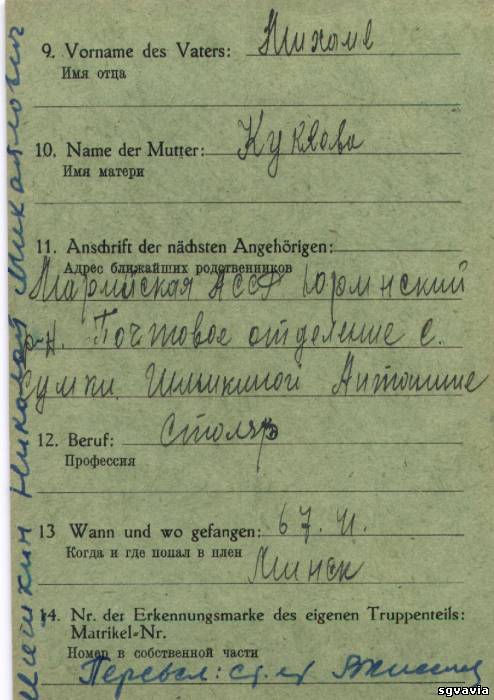 9. Vorname des Vaters: Михаил
Имя отца
10. Name der Mutter: Куклова
Имя матери
11. Anschrift der nächsten Angehörigen:
Адрес ближайших родственников
Марийская АССР Юринский
р-н. Почтовое отделение с.
Сумки. Антонине
12. Beruf: Столяр
Профессия
13 Wann und wo gefangen: 6 7. 41.
Когда и где попал в плен
Минск
14. Nr. der Erkennungsmarke des eigenen Truppenteils:
Matrikel-Nr.
Номер в собственной части
Перевел:
Николай Михайлович
sgvavia